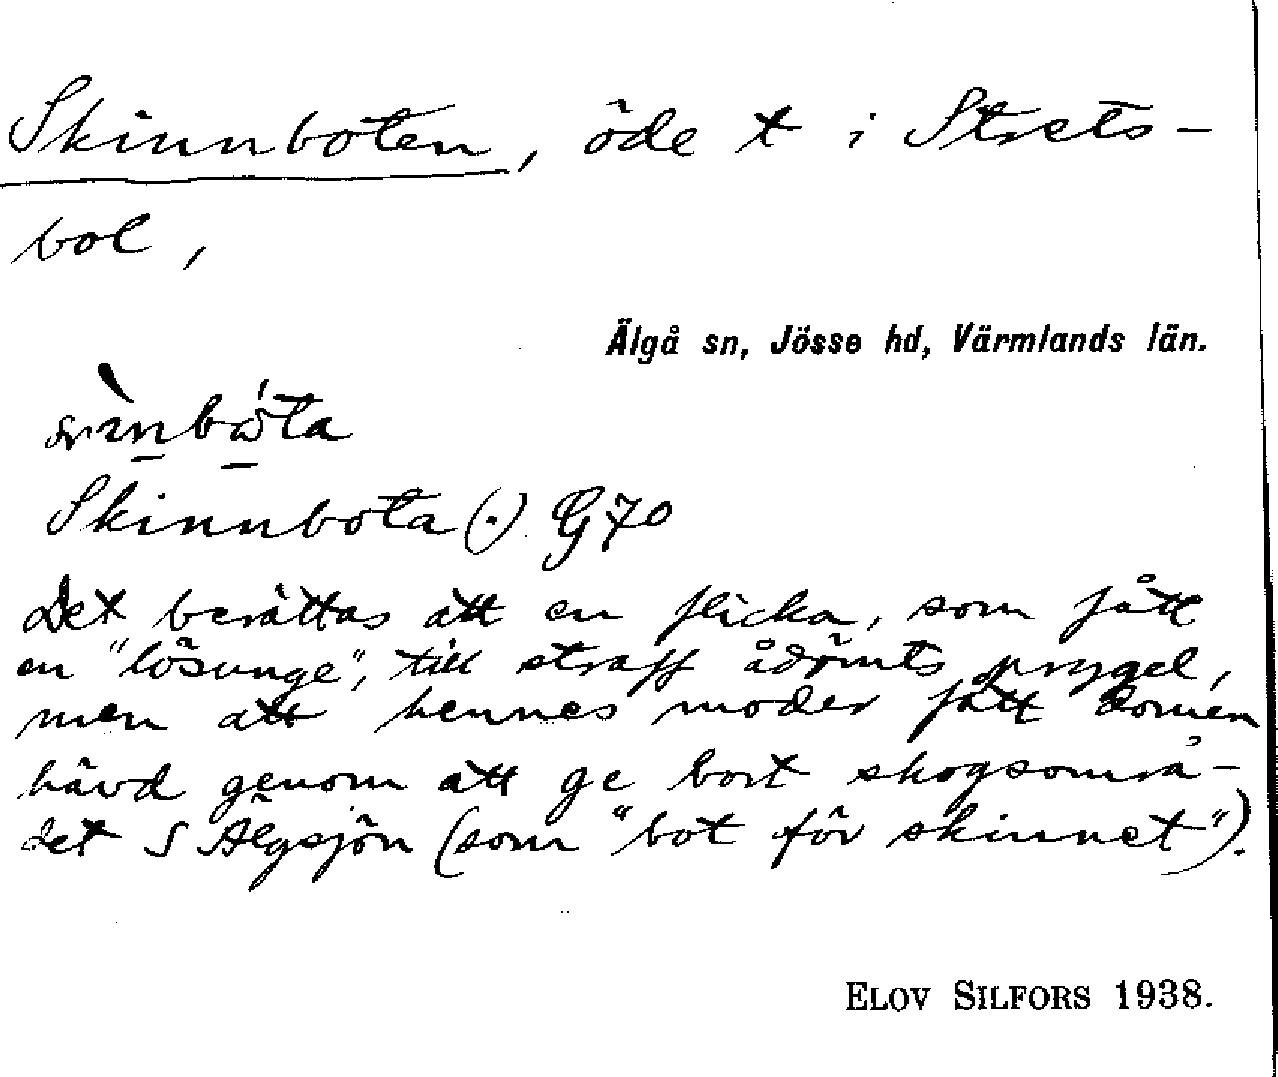 Skinnboten, öde t i Strets-
bol,
Älgå sn, Jösse hd, Värmlands län.
Skinnbota (.) G 70
Det berättas att en flicka, som fått
en "lösunge", till straff ådömts prygel,
men att hennes moder fått domen
hävd genom att ge bort skogsområ-
det S Älgsjön (som "bot för skinnet").
ELOV SILFORS 1938.